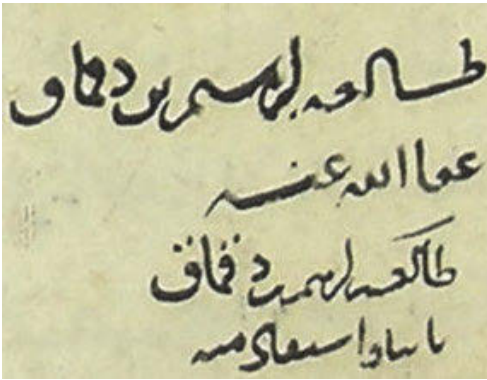 طالعه ابرهيم بن دقماق
عفا الله عنه
طالعه ابرهيم بن دقماق
ثانيا واستفاد منه